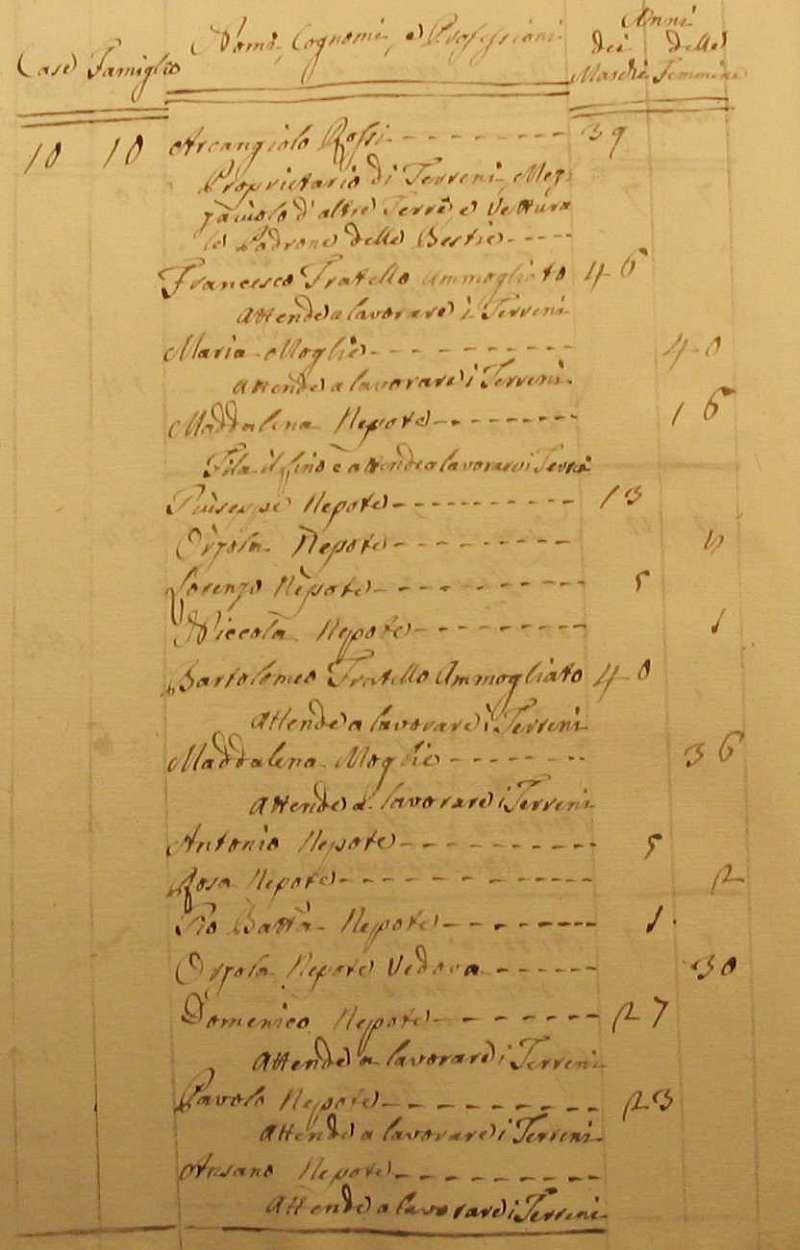 Anni
Case Famiglie Nomi, Cognomi, e Professioni dei delle
Maschi Femmine
10 10 Arcangiolo Rossi 39
Proprietario di Terreni, Mez-
zaiuolo d'altre Terre e Vettura
le Padrone delle Bestie
Francesco Fratello Ammogliato 46
Attende a lavorare i Terreni
Maria Moglie 40
Attende a lavorare i Terreni
Maddalena Nepote 16
Fila il lino e attende a lavorare i Terreni
Giuseppe Nepote 13
Orsola Nepote
Lorenzo Nepote 5
Niccola Nepote 1
Bartolomeo Fratello Ammogliato 40
Attende a lavorare i Terreni
Maddalena Moglie 36
Attende a lavorare i Terreni
Antonio Nepote 5
Rosa Nepote 2
Gio Batta Nepote 1
Orsola Nepote Vedova 30
Domenico Nepote 27
Attende a lavorare i Terreni
Pavolo Nepote 23
Attende a lavorare i Terreni
Ansano Nepote
Attende a lavorare i Terreni